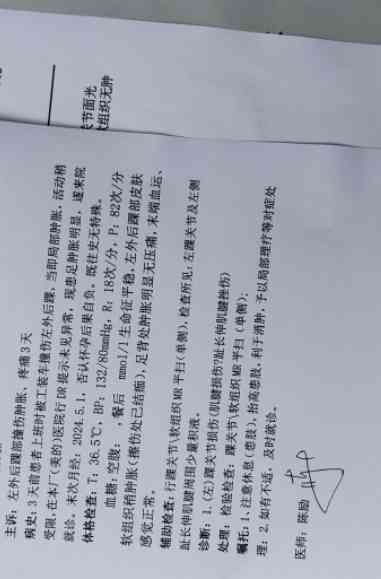 关节面光
软组织无肿
主诉：左外后踝部撞伤肿胀、疼痛3天
病史：3天前患者上班时被工装车撞伤左外后踝，当即局部肿胀，活动稍
受限，在本厂(美的)医院行DR提示未见异常，现患足肿胀明显，遂来院
就诊。末次月经：2024.5.1，否认怀孕后果自负。既往史无特殊。
体格检查：T：36.5℃，BP：132/80mmHg，R：18次/分，P：82次/分
血糖：空腹： ，餐后 mmol/l 生命征平稳，左外后踝部皮肤
软组织稍肿胀(擦伤处已结痂)，足背处肿胀明显无压痛，末端血运、
感觉正常。
辅助检查：行踝关节\软组织MR平扫(单侧)，检查所见：左踝关节及左侧
趾长伸肌腱周围少量积液。
诊断：1.(左)踝关节损伤(肌腱损伤?趾长伸肌腱挫伤)
处理：检验检查：踝关节\软组织MR平扫(单侧)；
嘱托：1、注意休息(患肢)，抬高患肢，利于消肿，予以局部理疗等对症处
理；2、如有不适，及时就诊。
医师：陈励